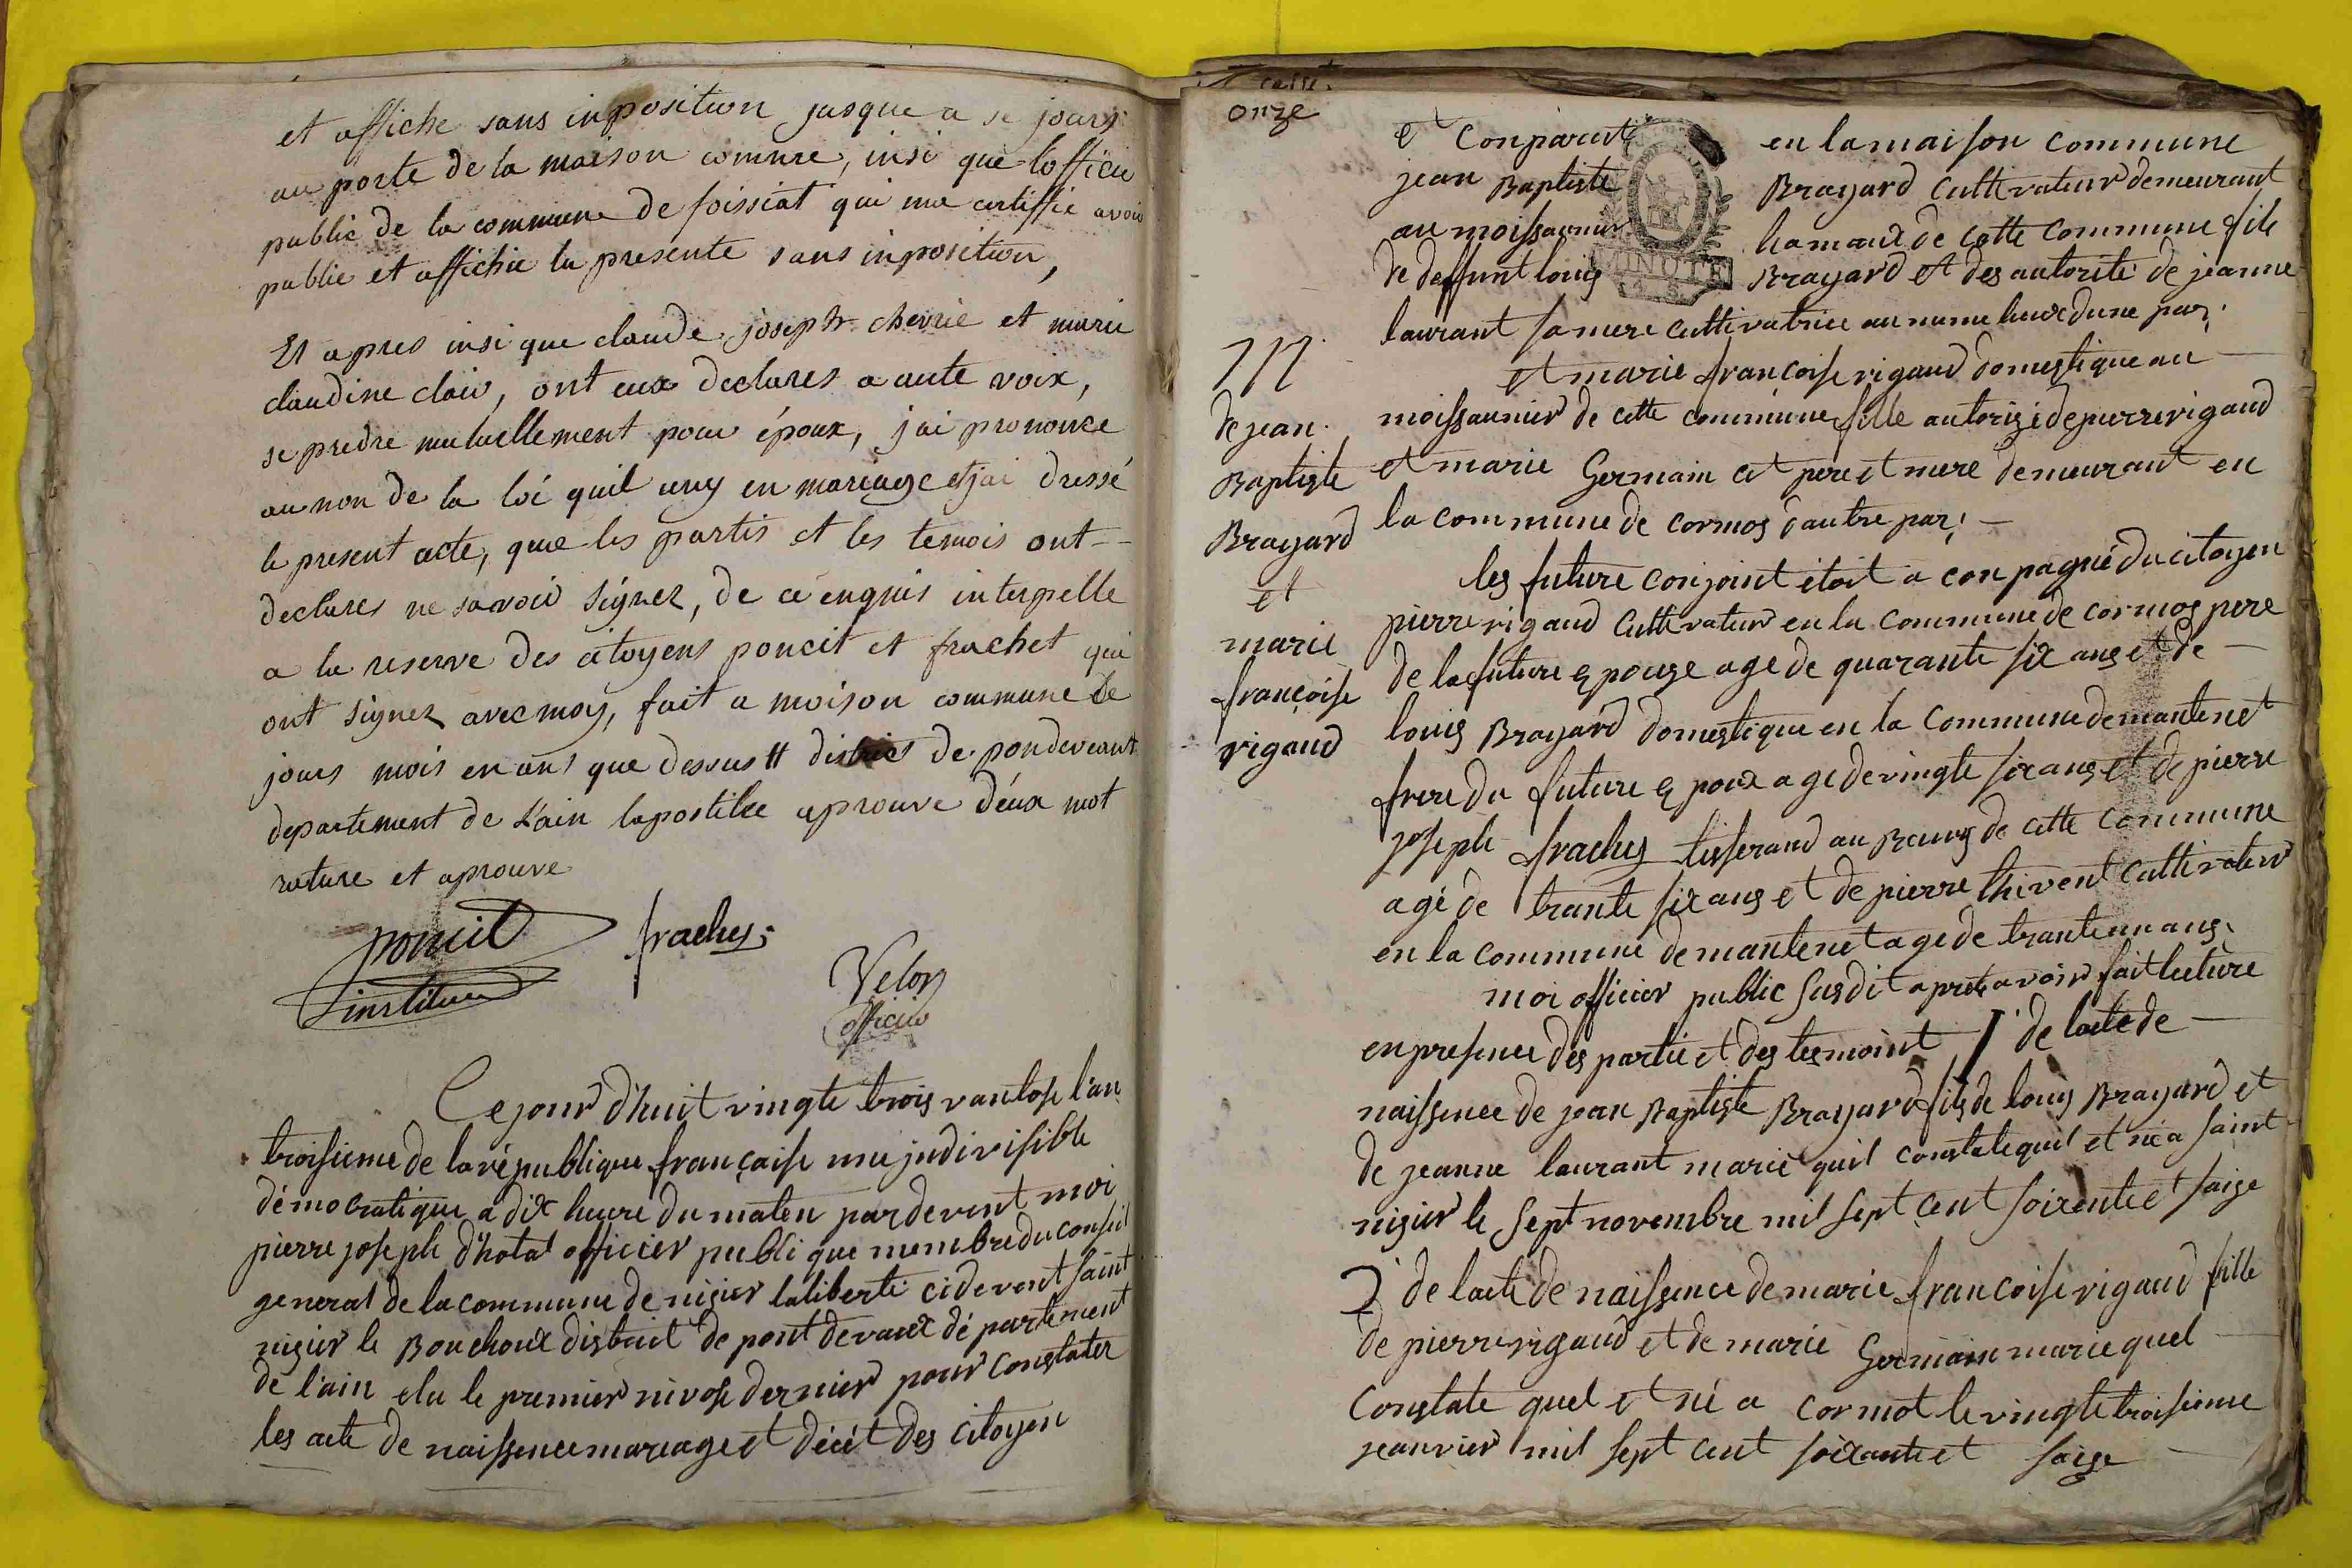 et affiche sans inposition jusque a se jours
au porte de la maison comune, insi que loffici
public de la commune de foissiat qui ma certiffie avoir
publie et affichie la presente sans inposition,
Et apres insi que claude joseph chevrie et marie
claudine clair, ont eux declares a aute voix,
se predre mutuellement pour époux, jai prononce
au non de la loi quil uny en mariage et jai dressé
le present acte, que les partis et les temois ont
declares ne savoir signer, de ce enquis interpelle
a la reserve des citoyens poncit et frachet qui
ont signez avec moy, fait a maison commune le
jours mois en ans que dessus # district de pondeveaux
departement de L'ain lapostille aprouve déux mot
rature et aprouve
poncit
institueur
frachey
Velon
officier
Ce jour d'huit vingte trois vantose l'an
troisieme de la république française une jndivisible
démocratique a dix heure du maten pardevent moi
pierre joseph d'hotal officier publique membre du conseil
general de la commune de nisier la liberté cidevent saint
nisier le Bouchoux distrait de pont devaux département
de l'ain elu le premier nivose dernier pour constater
les acte de naissence mariage et décét des citoyen
onze
et conparut en la maison commune
jean Baptiste Brayard cultivateur demeurant
au moissonnier hamaux de cette commune fils
de deffunt louis Brayard et des autorité de jeanne
MINUTE
laurant sa mere cultivatrice au meme lieux dune par;
et marie francoise rigaud domestique au
moissaunier de cette commune fille autorizé de pierre rigaud
et marie Germain ct pere et mere demeurant en
la commune de cormos dautre par;
de jean
Baptiste
Brayard
et
marie
françoise
rigaud
les future conjoint étoit aconpagné du citoyen
pierre rigaud cultivateur en la commune de cormos pere
de la future epouze age de quarante six ans et de
louis Brayard domestique en la commune demantenet
frere du future epoux age de vingte six ans et de pierre
joseph frachey tisserand au Bourg de cette commune
agé de trante six ans et de pierre thivent cultivateur
en la commune demantenet age de trante un ans.
moi officier public susdit apres avoir fait lecture
en presence des partie et des tesmoint 1 de lacte de
naissence de jean Baptiste Brayard fils de louis Brayard et
de jeanne laurant marié quil constate quil et né a saint
nisier le sept novembre mil sept cent soixente et saize
2 de lacte de naissence de marie francoise rigaud fille
de pierre rigaud et de marie Germain marie quel
constate quel et né a cormot le vingte troisieme
jeanvier mil sept cent soixante et saize